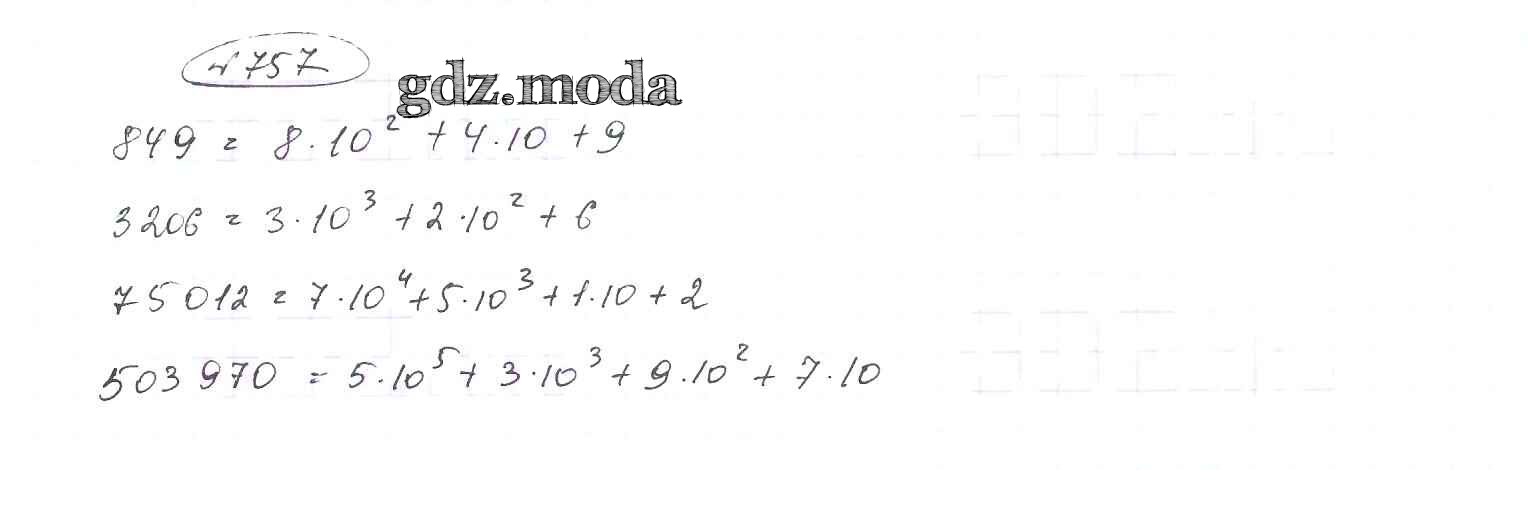 № 757
gdz.moda
849 = 8·10² + 4·10 + 9
3206 = 3·10³ + 2·10² + 6
75012 = 7·10⁴ + 5·10³ + 1·10 + 2
503 970 = 5·10⁵ + 3·10³ + 9·10² + 7·10